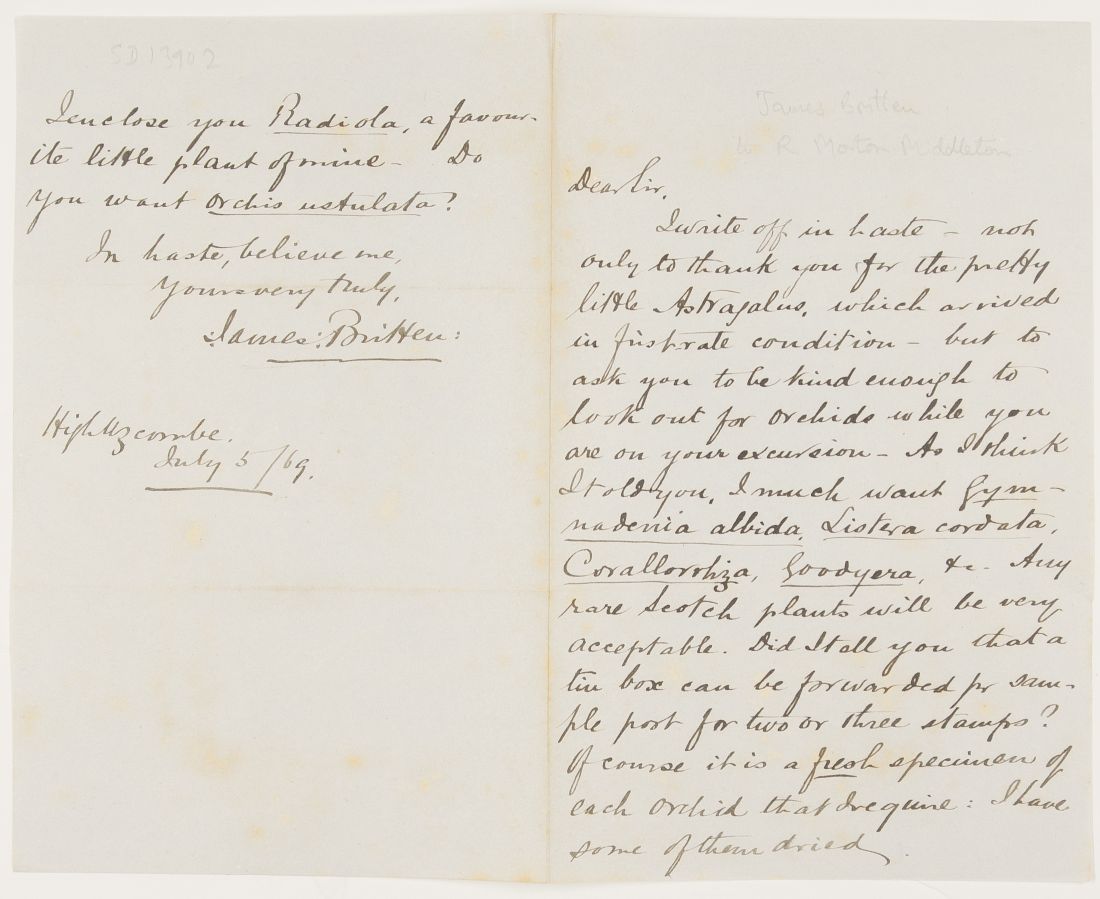 James Britten
to R Morton Middleton
Dear Sir,
I write off in haste – not
only to thank you for the pretty
little Astragalus, which arrived
in first-rate condition – but to
ask you to be kind enough to
look out for orchids while you
are on your excursion – As I think
I told you, I much want Gym-
nadenia albida, Listera cordata,
Corallorhiza, Goodyera, &c – Any
rare Scotch plants will be very
acceptable. Did I tell you that a
tin box can be forwarded pr sam-
ple post for two or three stamps?
Of course it is a fresh specimen of
each orchid that I require: I have
some of them dried.
SD13902
I enclose you Radiola, a favour-
ite little plant of mine – Do
you want Orchis ustulata?
In haste, believe me,
Yours very truly,
:James: Britten:
High Wycombe.
July 5/69.